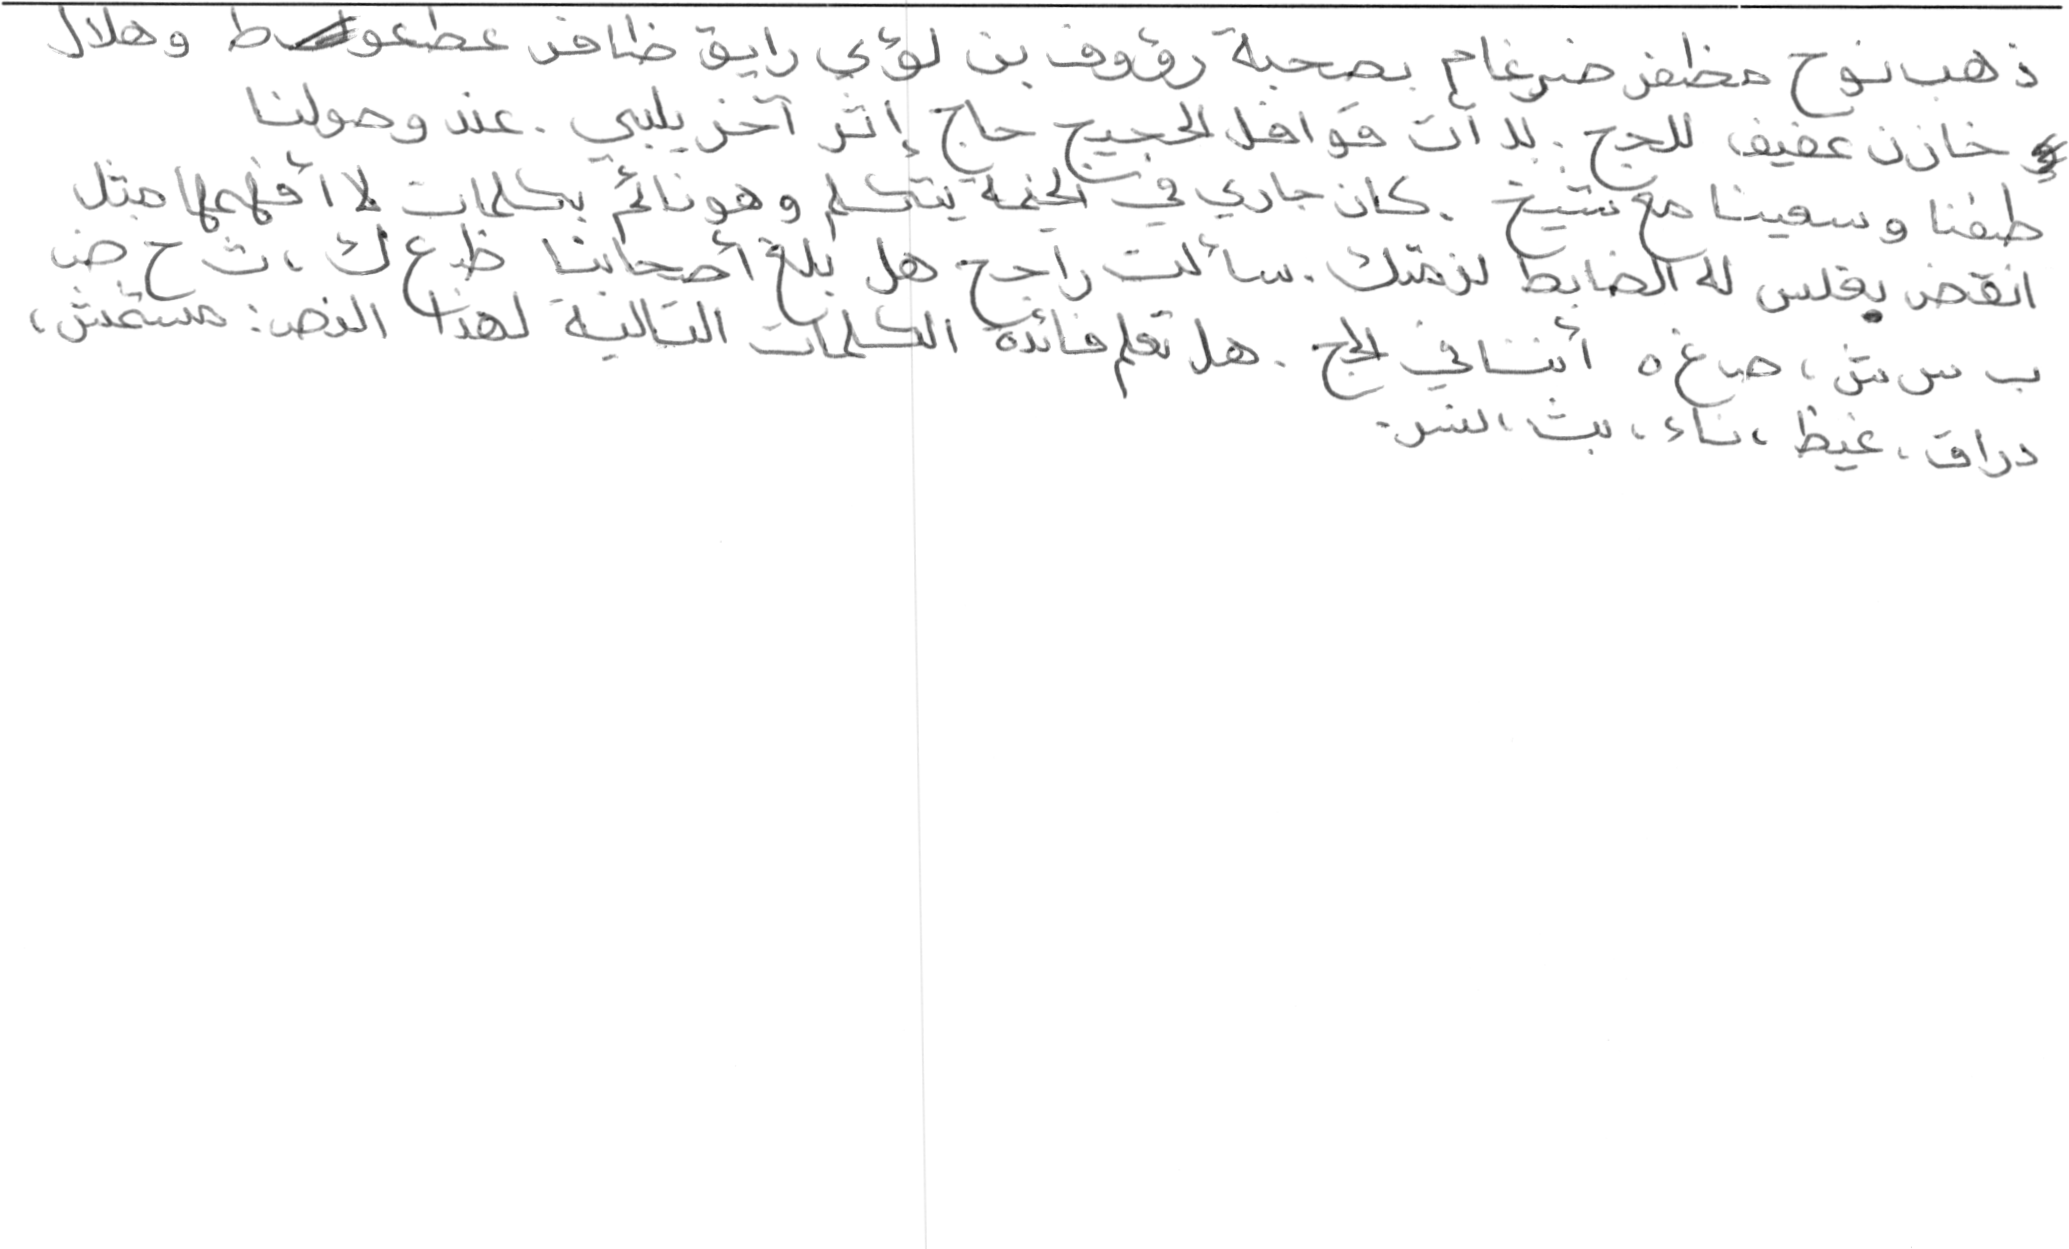 ذهب نوح مظفر ضرغام بصحبة رؤوف بن لؤي رايق ظافر عطعوط وهلال
خازن عفيف للحج. بدأت قوافل الحجيج حاج إثر آخر يلبي. عند وصولنا
طفنا وسعينا مع شيخ. كان جاري في الخيمة يتكلم وهو نائم بكلمات لا أفهمها مثل
انقض بقلس له الضابط لزمتك. سألت راجح هل بلغ أصحابنا ظ ع ك، ث ح ض
ب س ش، ص غ ه أثنا في الحج. هل تعلم فائدة الكلمات التالية لهذا النص: مشمش،
دراق، غيظ، ناء، بث، الشر.